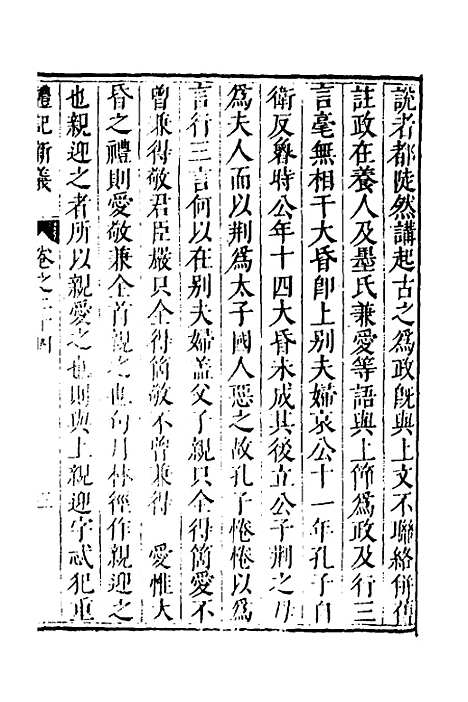 說者都陡然講起古之為政旣與上文不聯絡併舊
註政在養人及墨氏兼愛等語與上節為政及行三
言毫無相干大昏卽上别夫婦哀公十一年孔子自
衛反魯時公年十四大昏未成其後立公子荆之母
為夫人而以荆為太子國人惡之故孔子惓惓以為
言行三言何以在别夫婦蓋父子親只全得箇愛不
曾兼得敬君臣嚴只全得箇敬不曾兼得愛惟大
昏之禮則愛敬兼全首親之也句月林徑作親迎之
也親迎之者所以親愛之也則與上親迎字忒犯重
禮記新義
卷之二十四
三